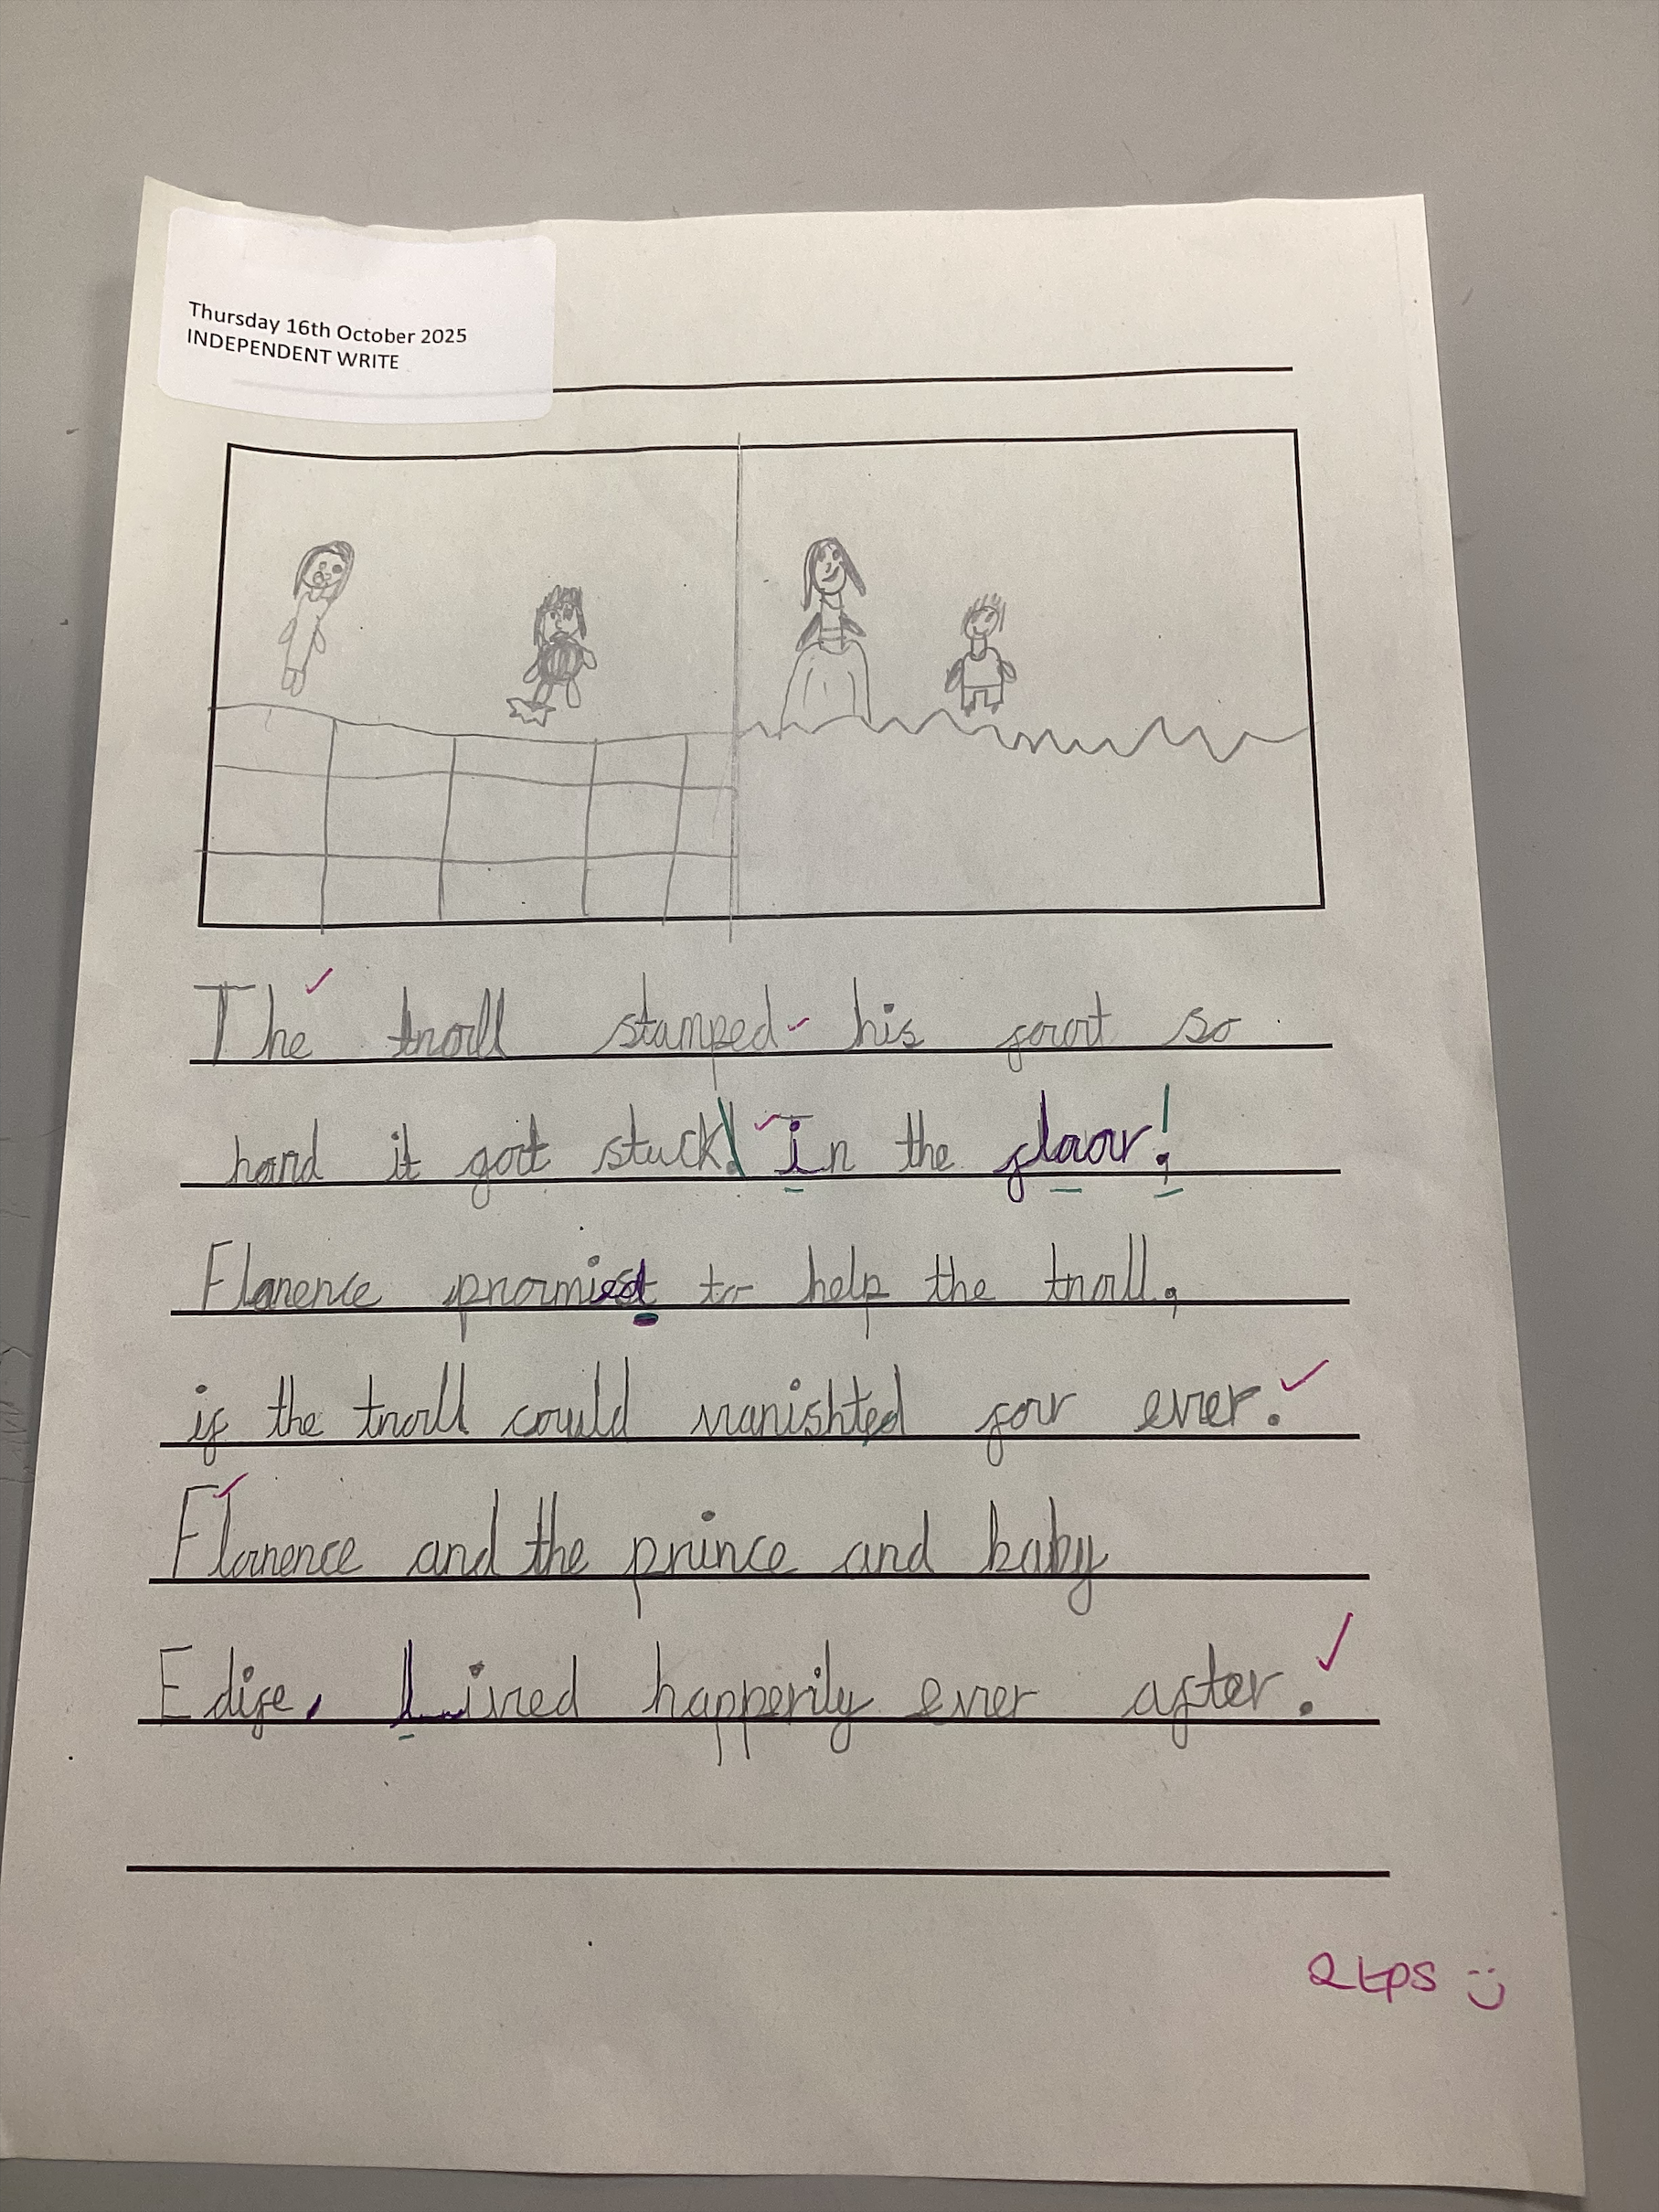 Thursday 16th October 2025
INDEPENDENT WRITE
The troll stamped his foot so
hard it got stuck! In the floor!
Florence promised to help the troll,
if the troll could vanishted for ever.
Florence and the prince and baby
Edife, Lived happerily ever after.
2tps